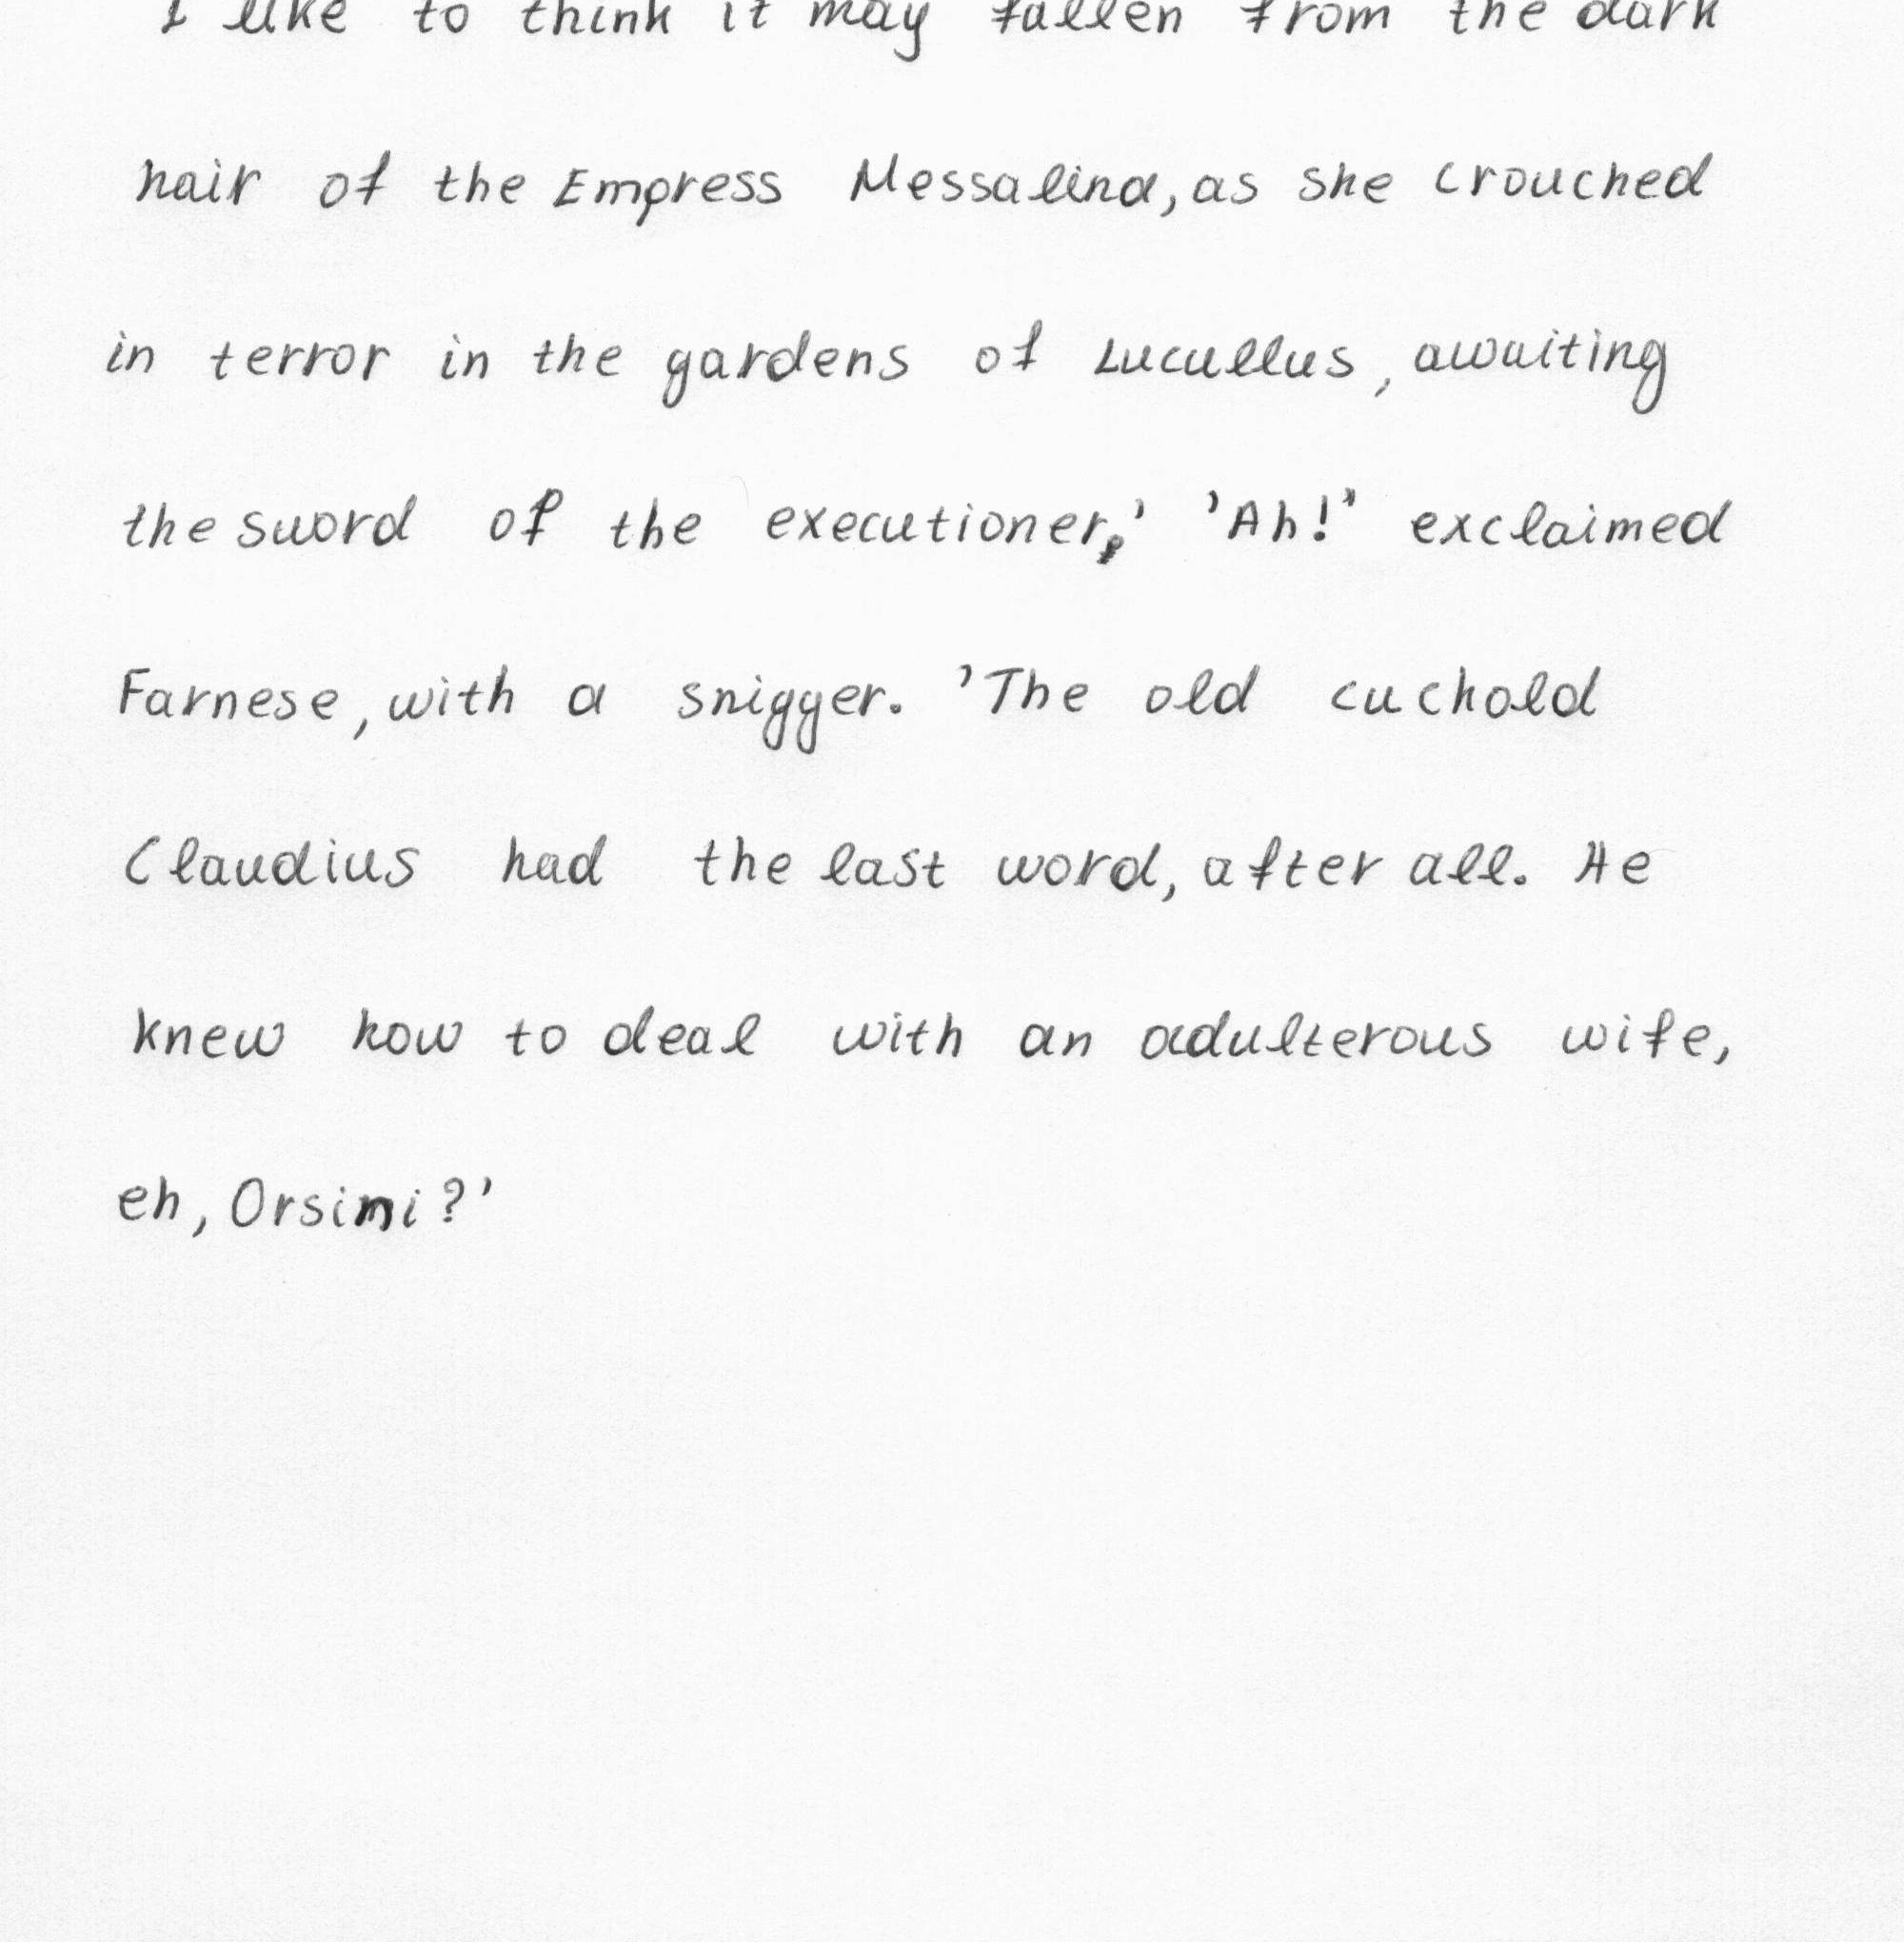 I like to think it may fallen from the dark
hair of the Empress Messalina, as she crouched
in terror in the gardens of Lucullus, awaiting
the sword of the executioner,' 'Ah!' exclaimed
Farnese, with a snigger. 'The old cuckold
Claudius had the last word, after all. He
knew how to deal with an adulterous wife,
eh, Orsini?'